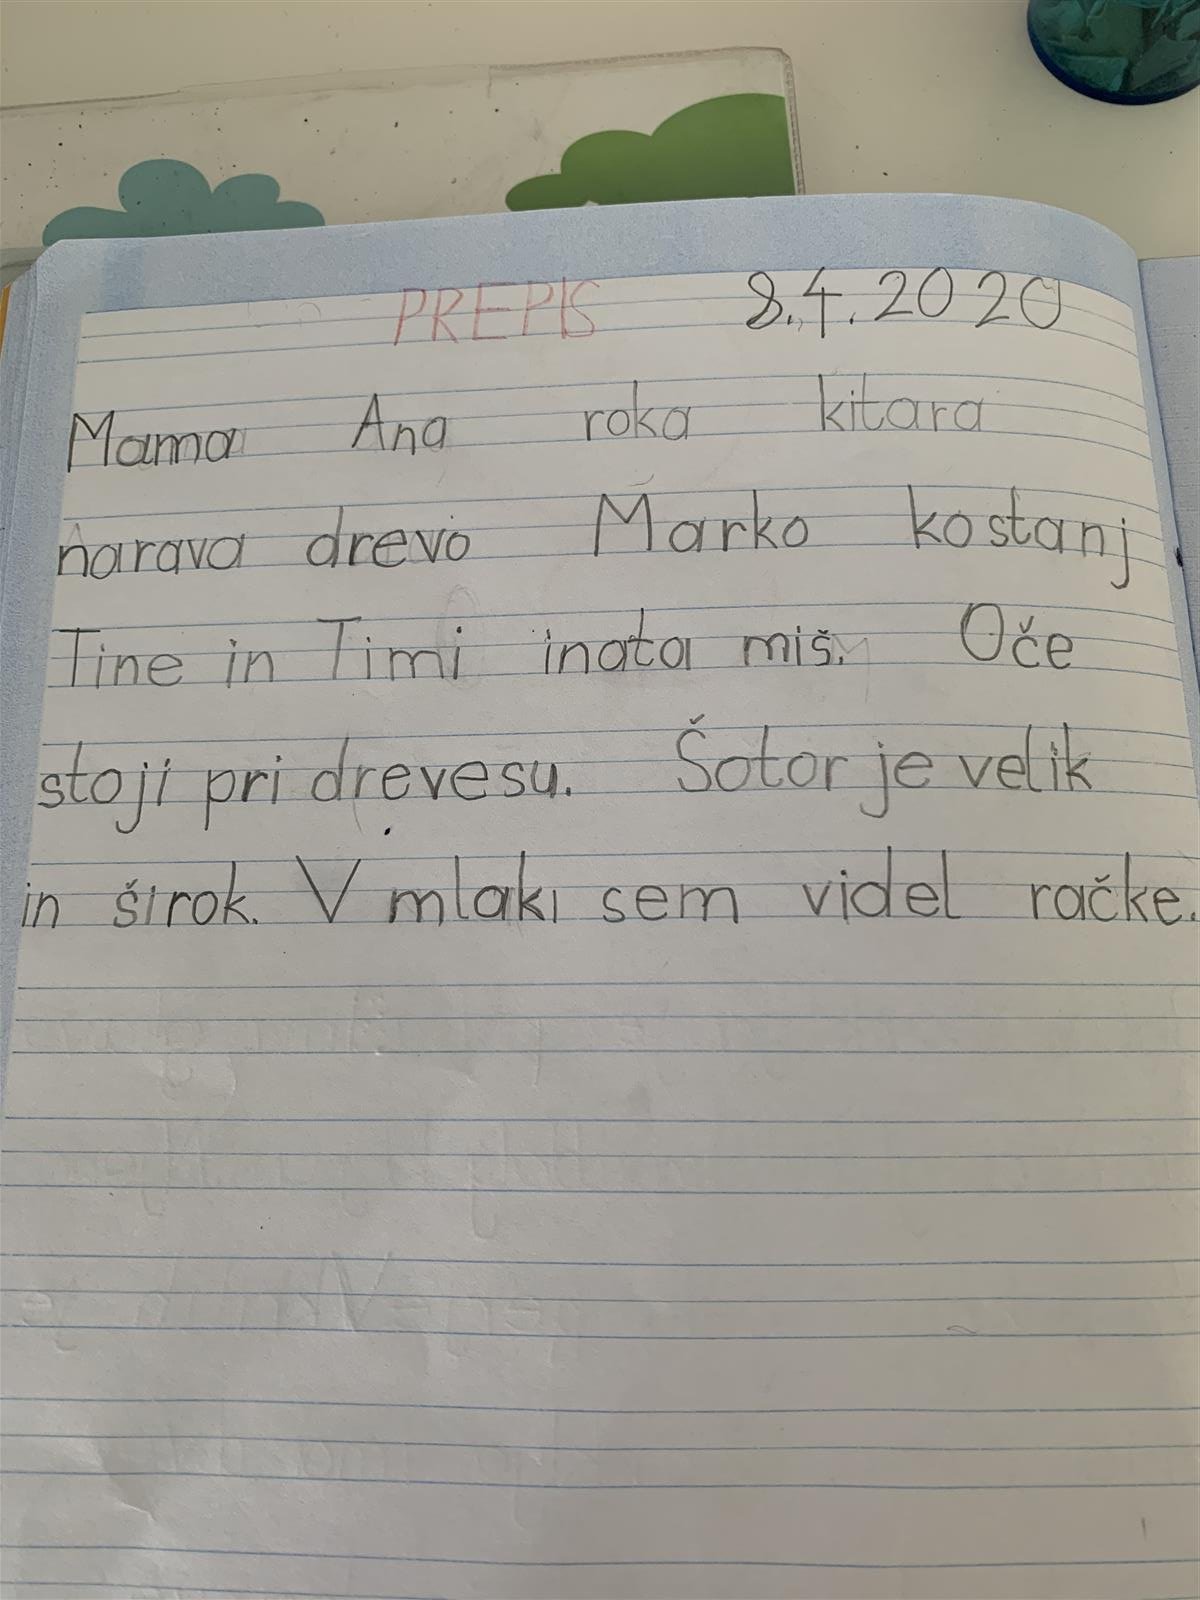 PREPIS 8.4.2020
Mama Ana roka kitara
narava drevo Marko kostanj
Tine in Timi inata miš. Oče
stoji pri drevesu. Šotor je velik
in širok. V mlaki sem videl račke.